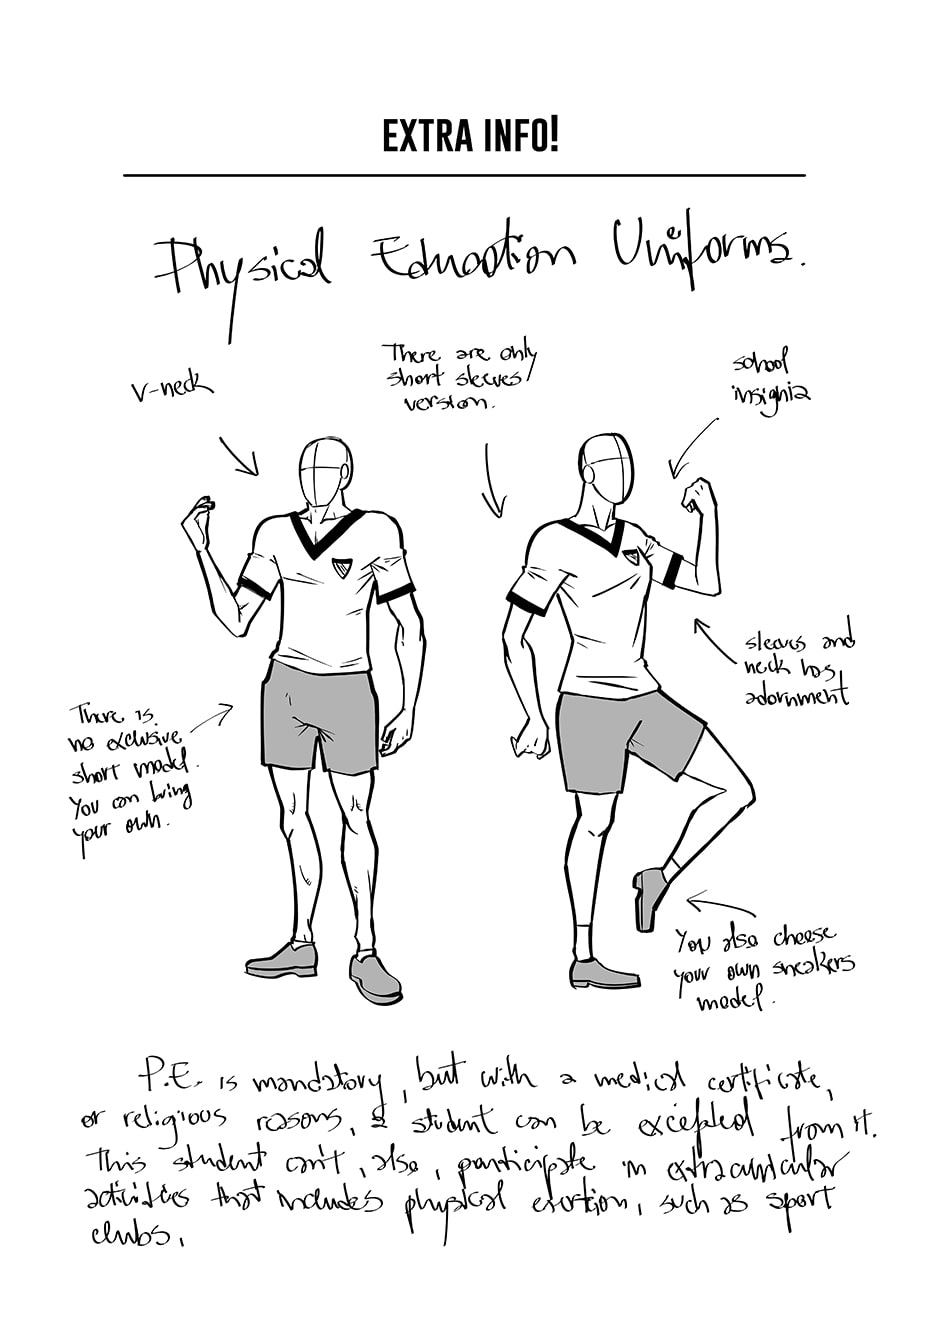 EXTRA INFO!
Physical Education Uniforms.
V-neck
There are only
short sleeves
version.
school
insignia
sleeves and
neck has
adornment
There is
no exclusive
short model.
You can bring
your own.
You also cheese
your own sneakers
model.
P.E. is mandatory, but with a medical certificate,
or religious reasons, a student can be excepted from it.
This student can't, also, participate in extracurricular
activities that includes physical exertion, such as sport
clubs.